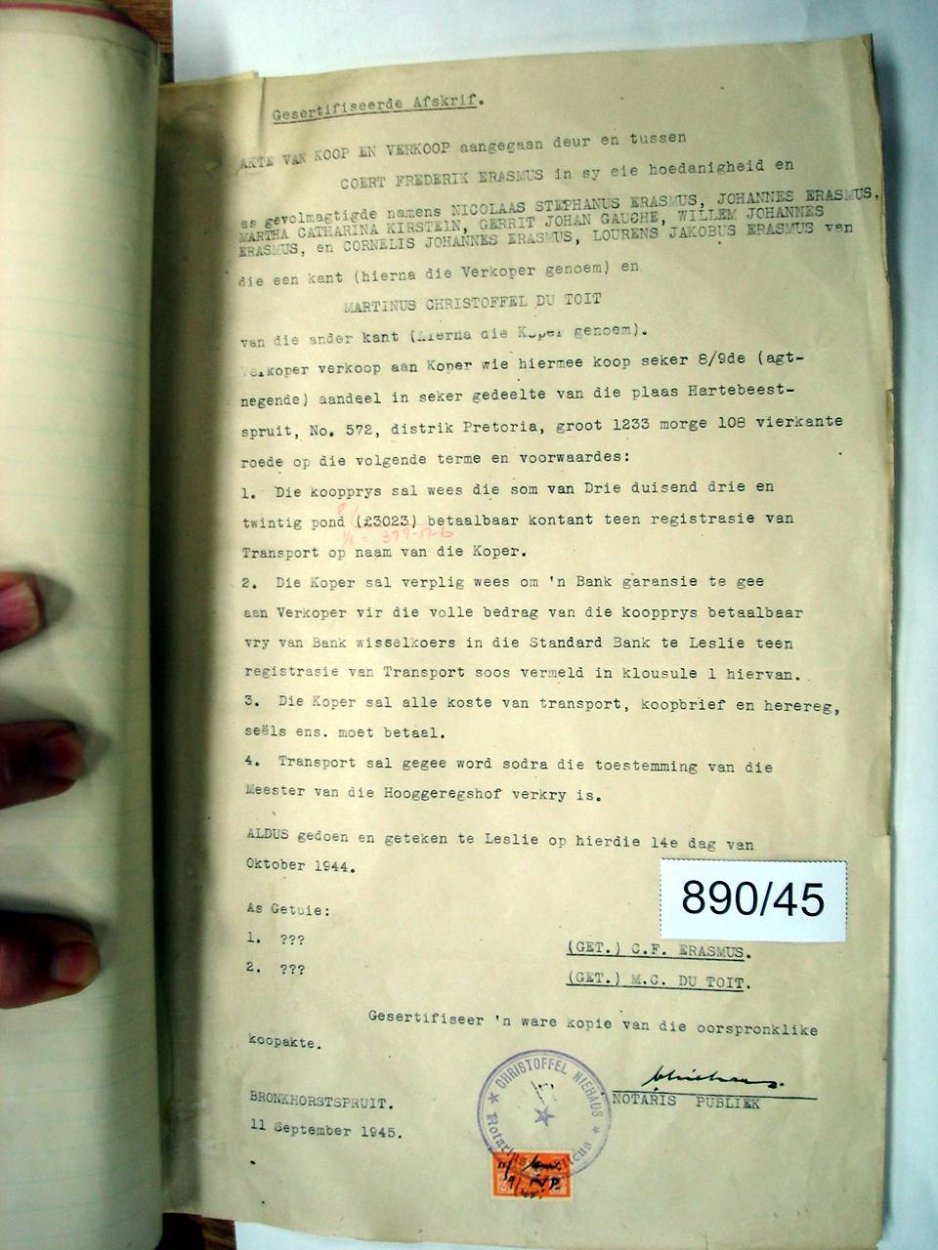 Gesertifiseerde Afskrif.
AKTE VAN KOOP EN VERKOOP aangegaan deur en tussen
COERT FREDERIK ERASMUS in sy eie hoedanigheid en
as gevolmagtigde namens NICOLAAS STEPHANUS ERASMUS, JOHANNES ERASMUS,
MARTHA CATHARINA KIRSTEIN, GERRIT JOHAN GAUCHE, WILLEM JOHANNES
ERASMUS, en CORNELIS JOHANNES ERASMUS, LOURENS JAKOBUS ERASMUS van
die een kant (hierna die Verkoper genoem) en
MARTINUS CHRISTOFFEL DU TOIT
van die ander kant (hierna die Koper genoem).
Verkoper verkoop aan Koper wie hiermee koop seker 8/9de (agt-
negende) aandeel in seker gedeelte van die plaas Hartebeest-
spruit, No. 572, distrik Pretoria, groot 1233 morge 108 vierkante
roede op die volgende terme en voorwaardes:
1. Die koopprys sal wees die som van Drie duisend drie en
twintig pond (£3023) betaalbaar kontant teen registrasie van
Transport op naam van die Koper.
2. Die Koper sal verplig wees om 'n Bank garansie te gee
aan Verkoper vir die volle bedrag van die koopprys betaalbaar
vry van Bank wisselkoers in die Standard Bank te Leslie teen
registrasie van Transport soos vermeld in klousule 1 hiervan.
3. Die Koper sal alle koste van transport, koopbrief en herereg,
seëls ens. moet betaal.
4. Transport sal gegee word sodra die toestemming van die
Meester van die Hooggeregshof verkry is.
ALDUS gedoen en geteken te Leslie op hierdie 14e dag van
Oktober 1944.
890/45
As Getuie:
1. ???
(GET.) C.F. ERASMUS.
2. ???
(GET.) M.C. DU TOIT.
Gesertifiseer 'n ware kopie van die oorspronklike
koopakte.
CHRISTOFFEL NIEHAUS
NOTARIS PUBLIEK
BRONKHORSTSPRUIT.
11 September 1945.